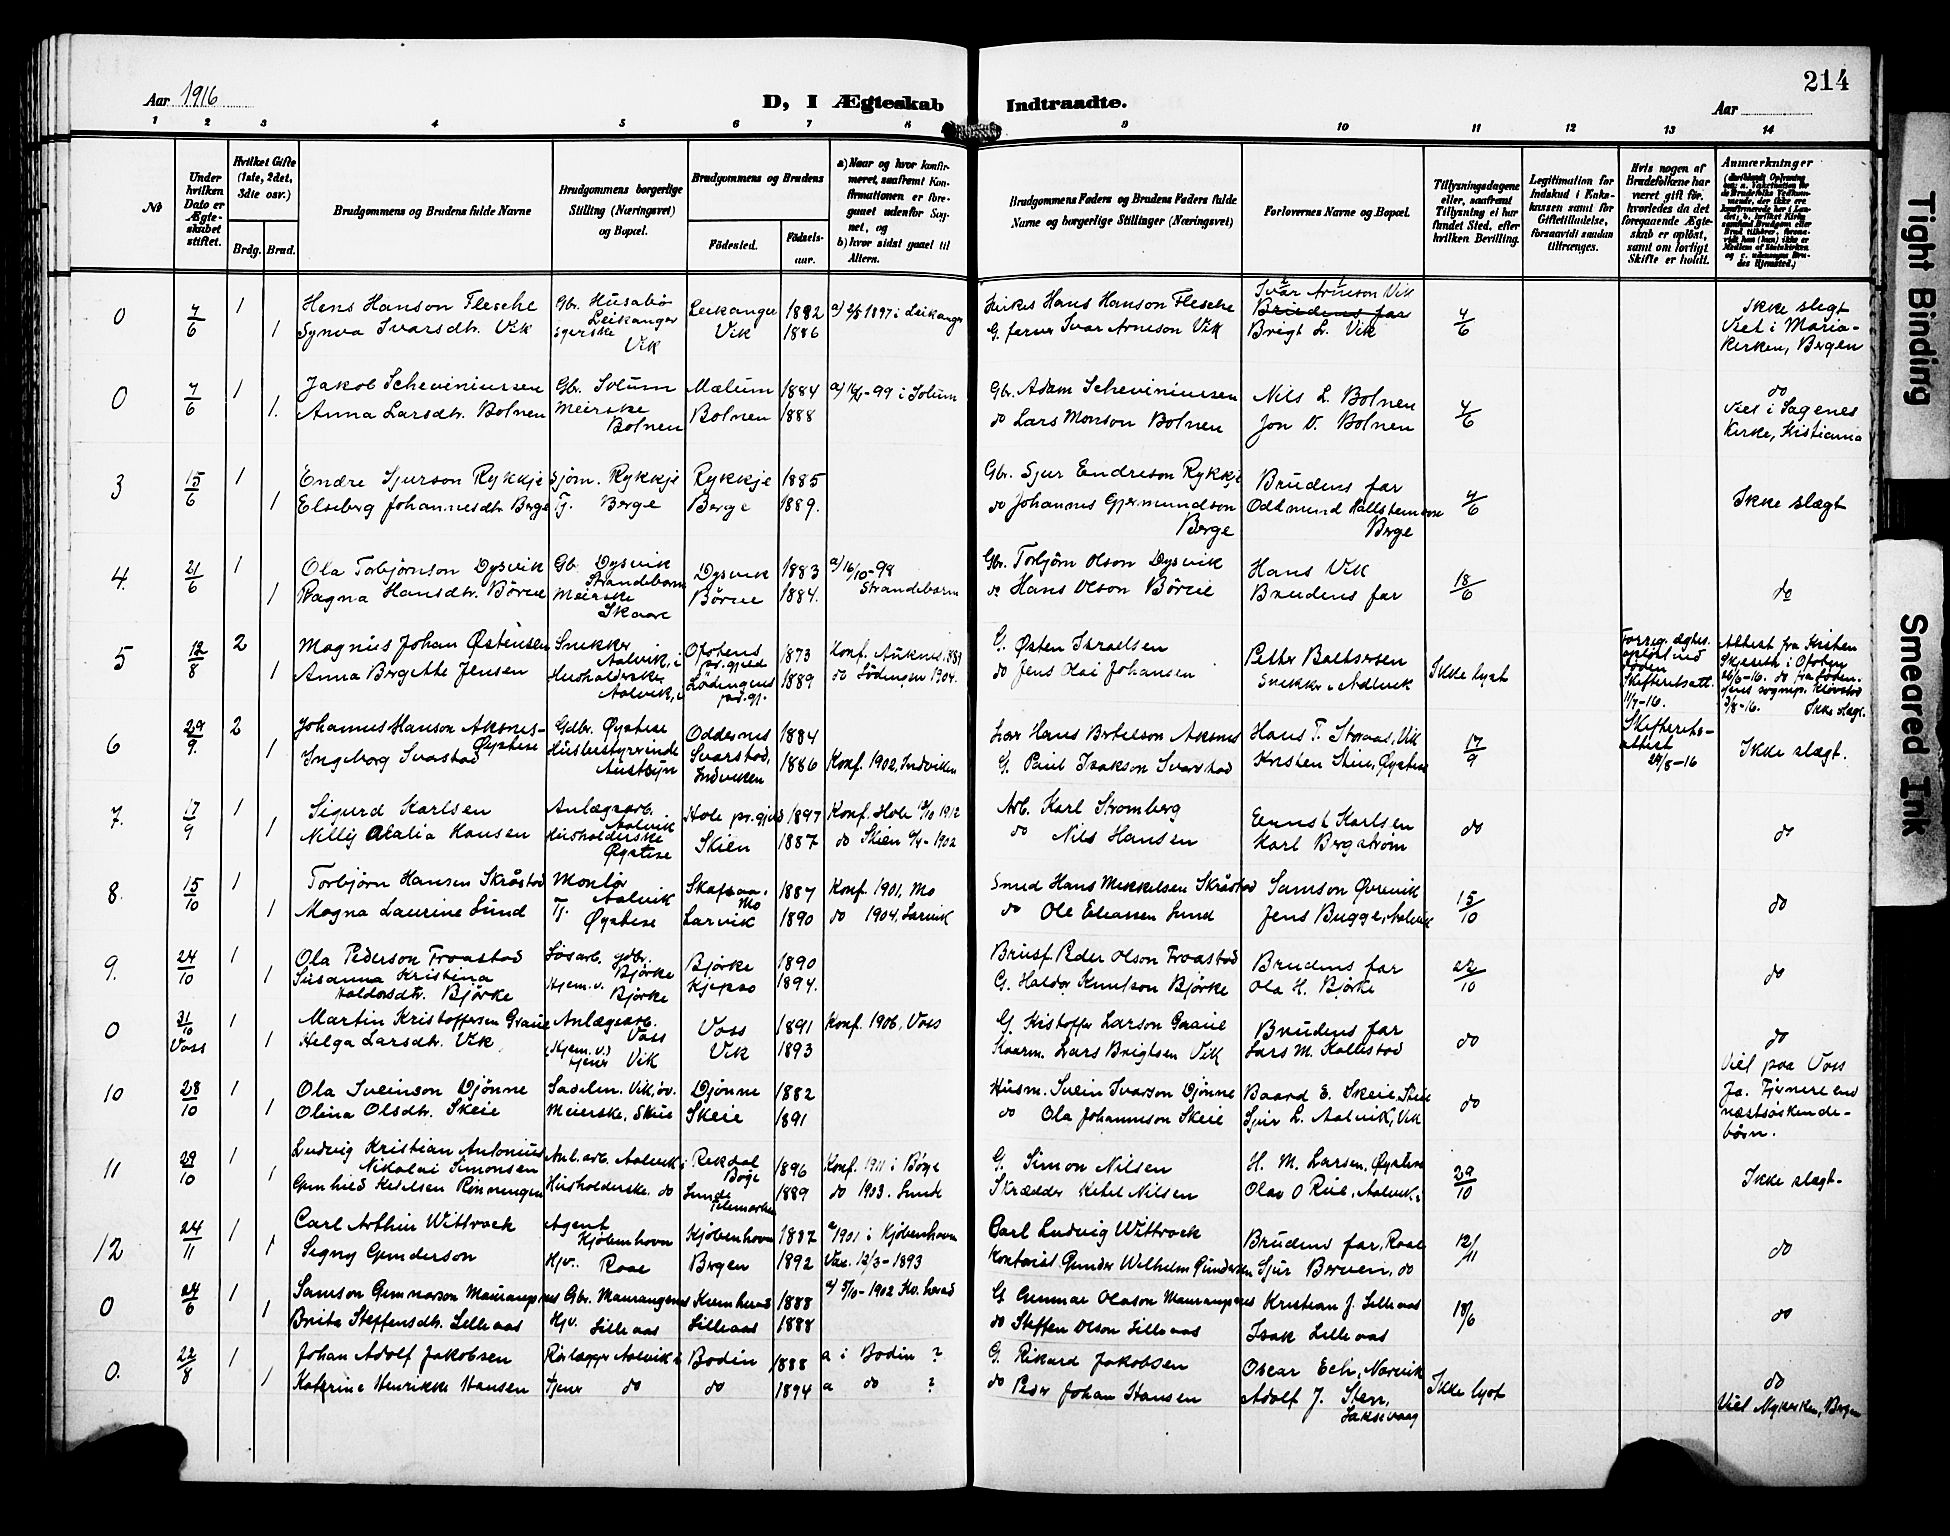 214
Aar 1916
D, I Ægteskab
Indtraadte.
Aar
1 2 3 4 5 6 7 8 9 10 11 12 13 14
No
Under hvilken Dato er Ægteskabet stiftet.
Hvilket Gifte (1ste, 2det, 3die osv.)
Brdg. Brud.
Brudgommens og Brudens fulde Navne
Brudgommens borgerlige Stilling (Næringsvei) og Bopæl.
Brudgommens og Brudens
Fødested.
Fødselsaar.
a) Naar og hvor konfirmeret, saafremt Konfirmationen er foregaaet udenfor Sognet, og
b) hvor sidst gaaet til Alters.
Brudgommens Faders og Brudens Faders fulde Navne og borgerlige Stillinger (Næringsvei)
Forlovernes Navne og Bopæl.
Tillysningsdagene eller, saafremt Tillysning ei har fundet Sted, efter hvilken Bevilling.
Legitimation for Indskud i Enkekassen samt for Giftetilladelse, forsaavidt saadan tiltrænges.
Hvis nogen af Brudefolkene har været gift før, hvorledes da det foregaaende Ægteskab er opløst, samt om lovligt Skifte er holdt.
Anmærkninger
0 7/6 1 Hens Hanson Flesche Gbr. Husabø Leikanger Leikanger 1882 a) 1897 i Leikanger Kirkes Hans Hanson Flesche Ivar Arneson Vik 4/6 Ikke slegt
1 Synva Ivarsdtr. Vik Vik Vik 1886 G. Ivar Arneson Vik Brigt L. Vik Viet i Mariakirken, Bergen
0 7/6 1 Jakob Scheviniussen Gbr. Solum Mælum 1884 a) -99 i Solum Gbr. Adam Scheviniussen Nils L. Botnen 4/6 do
1. Anna Larsdtr. Botnen Meierske Botnen Botnen 1888 do Lars Monson Botnen Jon O. Botnen Viet i Sagenes Kirke, Kistiania
3 15/6 1 Endre Sjurson Rykkje Sjøm. Rykkje Rykkje 1885 Gbr. Sjur Endreson Rykkje Brudens far 4/6
1 Elseberg Johannesdtr. Berge Tj. Berge Berge 1889. do Johannes Gjermundson Berge Oddmund Hallsteinson Berge Ikke slægt
4. 21/6 1 Ola Torbjørnson Dysvik Gb. Dysvik Strandebarm Dysvik 1883 a) 16/10-98 Strandebarm Gbr. Torbjørn Olson Dysvik Hans Vik 18/6
1 Ragna Hansdtr. Børve Meierske Skaare Børve 1884. do Hans Olson Børve Brudens far do
5 12/8 2 Magnus Johan Østensen Snekker Aalvik, i Ofotens pr.gjeld 1873 Konf. Ankenes 1889 G. Østen Israelsen Petter Baltsersen Ikke lyst
1 Anna Bergette Jensen Husholderske Aalvik, i Lødingens pr.gj. 1889 do Lödingen 1904. do Jens Olai Johansen Snekker i Aalvik
Skifteretsatt. 11/7-16.
3/8-16. Ikke slægt.
6 29/9. 2 Johannes Hanson Aksnes-Øystese Gdbr. Øystese Oddernes 1884 Hans Bertelson Aksnes Hans T. Straas, Vik 17/9 Skifteretsattest 29/8-16
1 Ingeborg Svarstad Husbestyrerinde Austsyn Svarstad, Indviken 1886 Konf. 1902, Indviken G. Paul Isakson Svarstad Kristen Steie, Øystese Ikke slægt.
7. 17/9 1 Sigurd Karlsen Anlægsarb. Aalvik Hole pr.gjeld 1897 Konf. Hole 1912 Arb. Karl Stromberg Ernst Karlsen do
1 Nelly Otalia Hansen Husholderske Øystese Skien 1887 do Skien 1902 do Nils Hansen Karl Bergstrøm do
8. 15/10 1 Torbjørn Hansen Skråstad Montør Aalvik Skafsaa. Mo 1887 Konf. 1901, Mo Smed Hans Mikkelsen Skråstad Samson Øvrevik 15/10
1 Magna Laurine Lund Tj. Øystese Larvik 1890 do 1904, Larvik do Ole Eliassen Lund Jens Bugge, Aalvik do
9. 24/10 1 Ola Pederson Fraastad Løsarb. gdbr. Bjørke Bjørke 1890 Brusf. Peder Olson Fraastad Brudens far 22/10
1 Susanna Kristina Haldorsdtr. Bjørke Hjem.v. Bjørke Kjepso 1894. G. Haldor Knutson Bjørke Ola H. Bjørke do
0 31/10 Voss 1 Martin Kristoffersen Graue Anlægsarb. Voss Voss 1891 Konf. 1906, Voss G. Kistoffer Larson Graue Brudens far do do
1 Helga Larsdtr. Vik (Hjem.v.) tjener Vik Vik 1893 Lars Brigtsen Vik Lars M. Kollestad Viet paa Voss
10 28/10 1 Ola Sveinson Djønne Sadelm. Vik, øv. Djønne 1882 Husm. Svein Ivarson Djønne Baard E. Skeie, Steie do Ja. Fjernere end næstsøskendebørn.
1 Olina Olsdtr. Skeie Meierske, Skeie Skeie 1891 do Ola Johanneson Skeie Sjur L. Aalvik, Vik
11 29/10 1 Ludvig Kristian Antonius Nikolai Simonsen Anl.arb. Aalvik i Reksdal Bøge 1896 Konf. 1911 i Bøge G. Simon Nilsen H. M. Larsen, Øystese 29/10
1 Gunhild Ketilsen Rönningen Husholderske. do Lunde Telemarken 1889 do 1903. Lunde Skrædder Ketel Nilsen Olav O Rue, Aalvik, i Ikke slægt.
12 24/11 1 Carl Arthur Wittrock Agent Kjøbenhavn Kjøbenhavn 1887 a 1901 i Kjøbenhavn Carl Ludvig Wittrock 12/11
1 Signy Gunderson Hjv. Roae Bergen 1892 Vac. 12/3-1893 Kontorist Gunder Wilhelm Gundersen Brudens far, Roae Sjur Berven, do do
0 24/6 1 Samson Gunnarson Maurangsnes Gbr. Maurangsnes Kvinherad 1888 a) 5/10-1902 Kv.herad G Gunnar Olason Maurangsnes Kristian J. Lilleaas 18/6
1 Brita Steffensdtr. Lilleaas Hjv. Lilleaas Lilleaas 1888 do Steffen Olson Lilleaas Isak Lilleaas do
0. 22/8 1 Johan Adolf Jakobsen Rørlægger Aalvik i Bodin 1888 a i Bodin ? G. Rikard Jakobsen Oscar Ech, Narvik Ikke lyst
1 Katrine Henrikke Hansen Tjener do do 1894 a do ? do Peder Johan Hansen Adolf J. Sten, Laksevaag do
Viet Nykirken, Bergen
Tight Binding
Smeared Ink